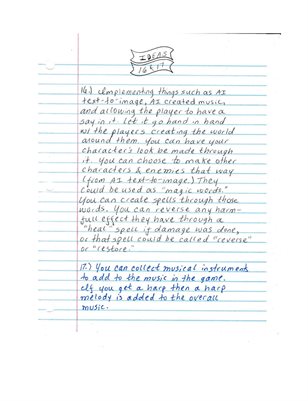 IDEAS
16 & 17
16.) Implementing things such as AI
text-to-image, AI created music,
and allowing the player to have a
say in it. Let it go hand in hand
w/ the players creating the world
around them. You can have your
character's look be made through
it. You can choose to make other
characters & enemies that way
(from AI text-to-image.) They
could be used as "magic words."
You can create spells through those
words. You can reverse any harm-
full effect they have through a
"heal" spell if damage was done,
or that spell could be called "reverse"
or "restore."
17.) You can collect musical instruments
to add to the music in the game.
If you get a harp then a harp
melody is added to the overall
music.